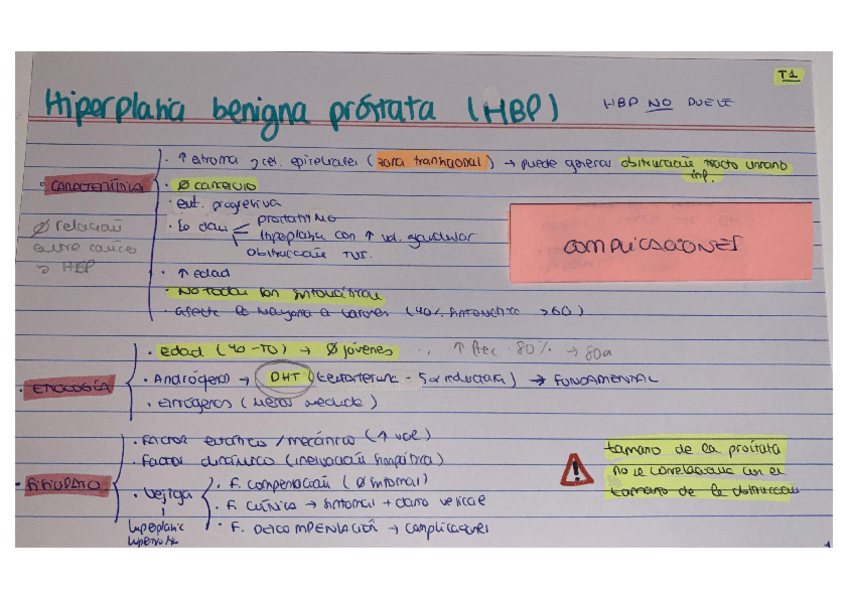 T1
Hiperplasia benigna próstata (HBP)
HBP NO DUELE
CARACTERÍSTICA
· ↑ estroma y cel. epiteliales (zona transicional) → puede generar obstrucción tracto urinario inf.
· Ø cancerio
· ent. progresiva
· Se dan
prostatismo
hiperplasia con ↑ vol. glandular
obstrucción TUI.
· ↑ edad
· No todas son sintomáticas
· afecta la mayoría a varones (40% sintomático >60)
Ø relación
entre cáncer
y HBP
COMPLICACIONES
· ETIOLOGÍA
· edad (40-70) → Ø jóvenes
↑ frec 80% → 80a
· Andrógenos → DHT (testosterona - 5α reductasa) → FUNDAMENTAL
· estrógenos (menor medida)
· FISIOPATO
· Factor estático / mecánico (↑ vol)
· Factor dinámico (inervación simpática)
· Vejiga
hiperplasia
· F. compensación (Ø síntomas)
· F. clínica → síntomas + claro vejiga
· F. DESCOMPENSACIÓN → complicaciones
tamaño de la próstata
no se correlaciona con el
tamaño de la obstrucción